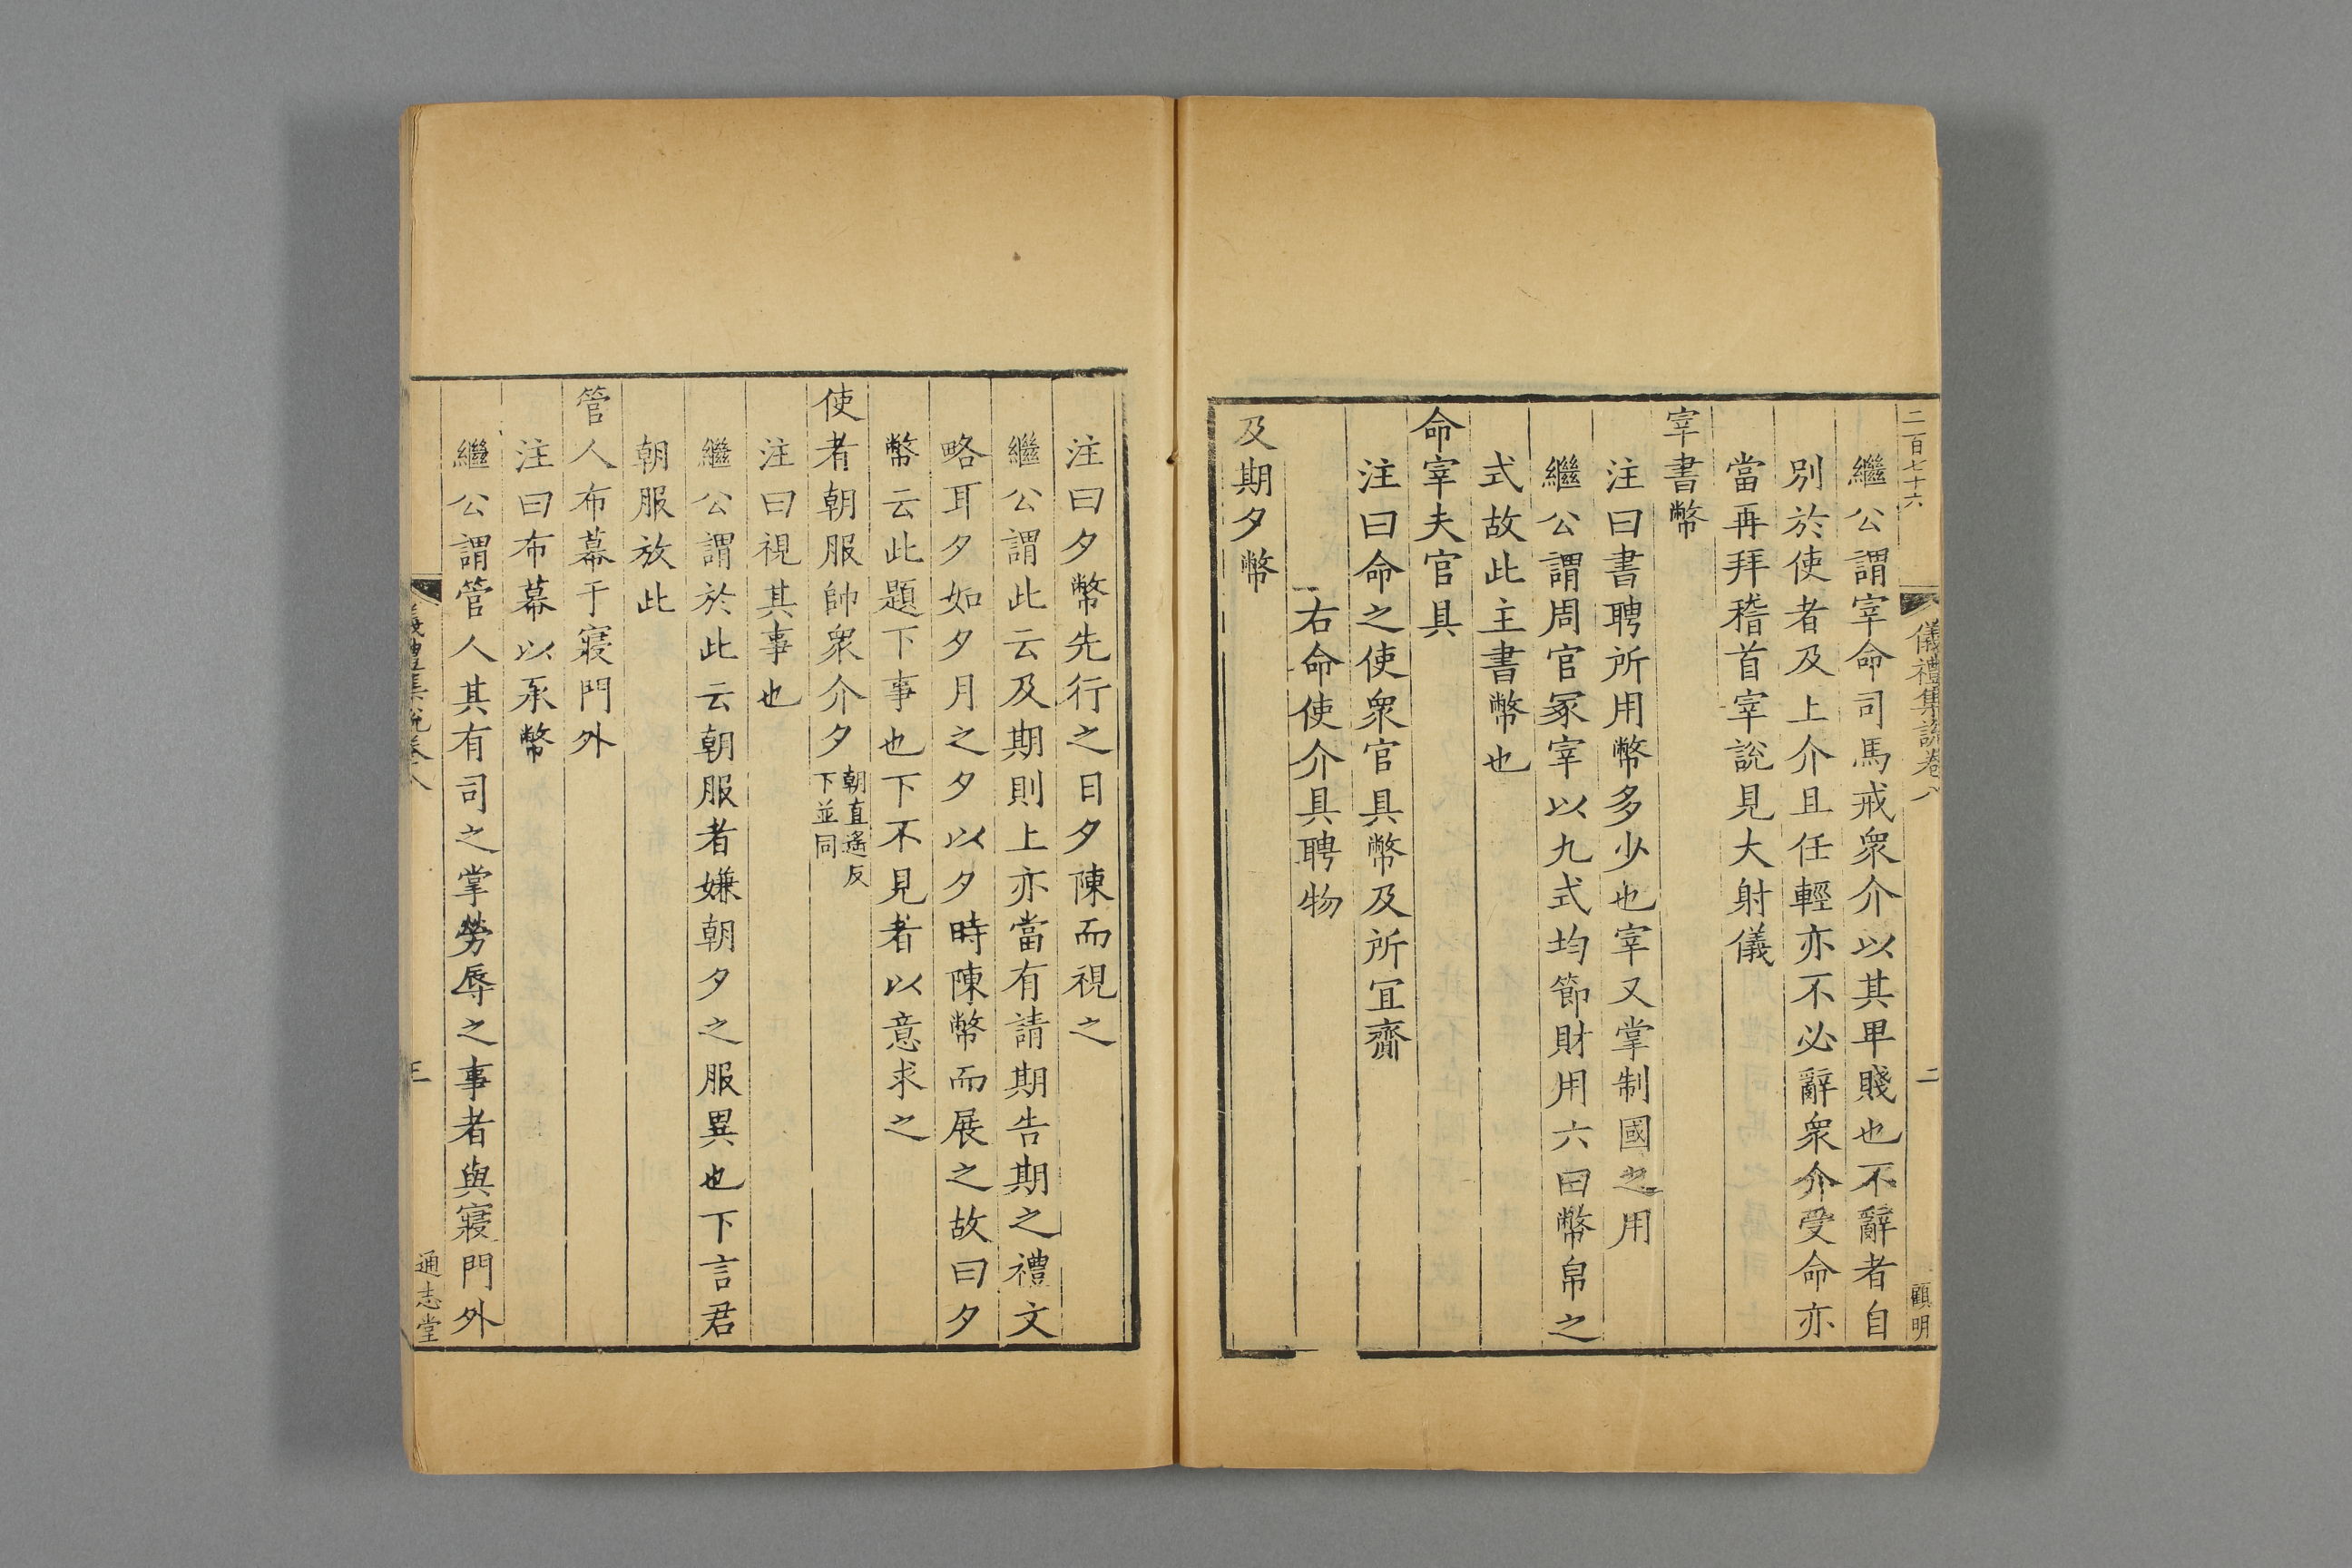 二百七十六
儀禮集說卷八
二
顧明
繼公謂宰命司馬戒衆介以其卑賤也不辭者自
別於使者及上介且任輕亦不必辭衆介受命亦
當再拜稽首宰說見大射儀
宰書幣
注曰書聘所用幣多少也宰又掌制國之用
繼公謂周官冢宰以九式均節財用六曰幣帛之
式故此主書幣也
命宰夫官具
注曰命之使衆官具幣及所宜齎
右命使介具聘物
及期夕幣
注曰夕幣先行之日夕陳而視之
繼公謂此云及期則上亦當有請期告期之禮文
略耳夕如夕月之夕以夕時陳幣而展之故曰夕
幣云此題下事也下不見者以意求之
使者朝服帥衆介夕朝直遙反下並同
注曰視其事也
繼公謂於此云朝服者嫌朝夕之服異也下言君
朝服放此
管人布幕于寢門外
注曰布幕以承幣
繼公謂管人其有司之掌勞辱之事者與寢門外
儀禮集說卷八
三
通志堂